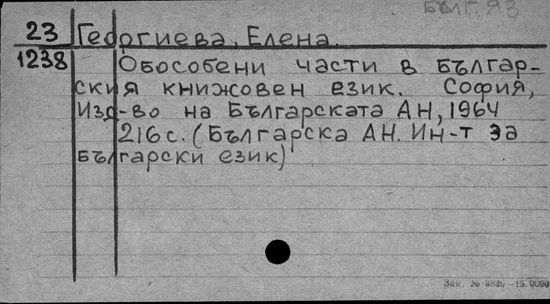 Бълг. яз
23 Георгиева, Елена.
1238 Обособени части в българ-
ския книжовен език. София,
Изд-во на Българската АН, 1964
216 с. (Българска АН. Ин-т за
български език)
Зак. №